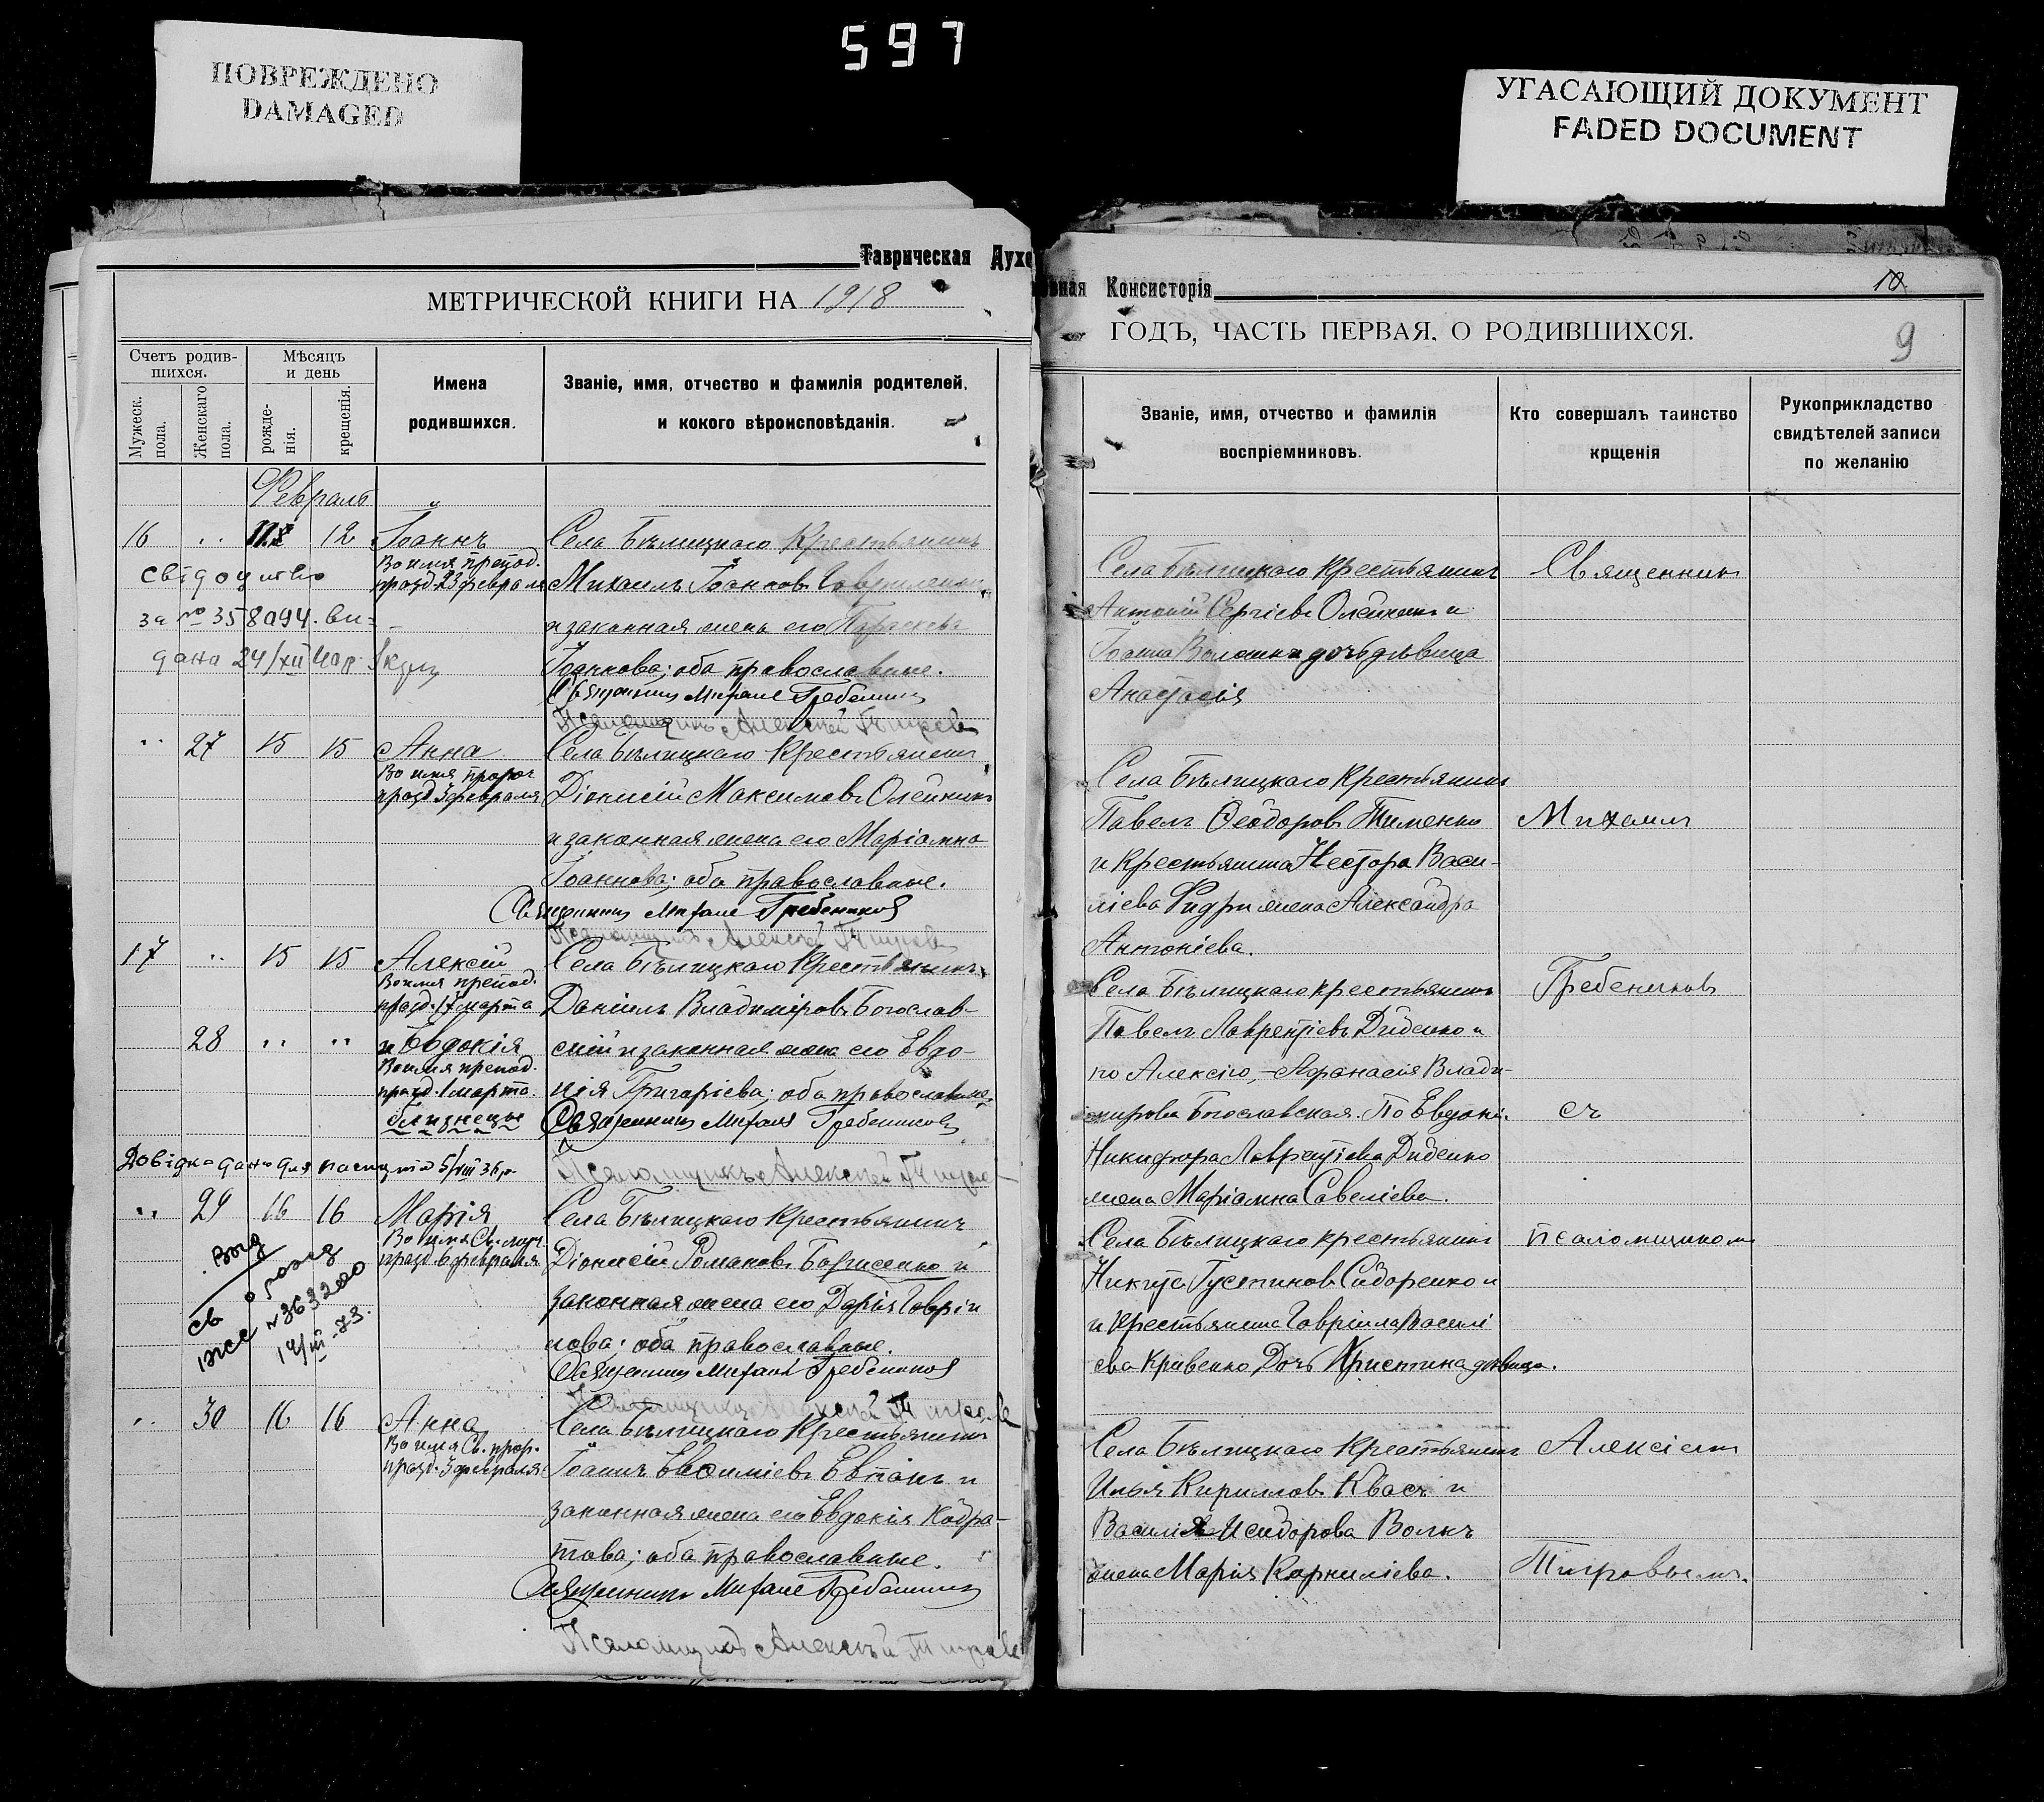 597
ПОВРЕЖДЕНО
DAMAGED
УГАСАЮЩИЙ ДОКУМЕНТ
FADED DOCUMENT
Таврическая Духо
МЕТРИЧЕСКОЙ КНИГИ НА 1918
Счетъ родив-
шихся.
Мѣсяцъ
и день
Мужеск.
пола.
Женскаго
пола.
рожде-
нія.
крещенія.
Имена
родившихся.
Званіе, имя, отчество и фамилія родителей,
и кокого вѣроисповѣданія.
Февраль
16 12 Іоаннъ
Во имя препод.
празд 23 февраля
Села Бѣлицкаго Крестьянинъ
Михаилъ Іоанновъ
и законная жена его Параскева
Іоаннова; оба православные.
Священникъ Михаилъ Гребениковъ
Псаломщикъ Алексѣй Тигровъ
свідоцтво
за № 358094. ви-
дана 24/XII
27 15 15 Анна
Во имя пророч
празд 3 февраля
Села Бѣлицкаго Крестьянинъ
Діонисій Максимовъ Олейникъ
и законная жена его Маріамна
Іоаннова; оба православные.
Священникъ Михаилъ Гребениковъ
Псаломщикъ Алексѣй Тигровъ
17 15 15 Алексій
Во имя препод.
празд. 17 марта
Села Бѣлицкаго Крестьянинъ
Даніилъ Владиміровъ Богослав-
28 " " и Евдокія
Во имя препод.
празд. 1 марта.
близнецы
скій и законная жена его Евдо-
кія Григоріева; оба православные.
Священникъ Михаилъ Гребениковъ
Псаломщикъ Алексѣй Тигровъ
Довідка дана для паспорта 5/VIII 36 р.
29 16 16 Марія
Во имя Св. муч
празд 6 февраля
Села Бѣлицкаго Крестьянинъ
Діонисій Романовъ Борисенко и
законная жена его Дарія Гаврі
лова; оба православные.
Священникъ Михаилъ Гребениковъ
Выд
св о рожд
№ 363200
14/III-73.
30 16 16 Анна
Во имя Св. прор.
празд. 3 февраля
Села Бѣлицкаго Крестьянинъ
Іоаннъ Евѳиміевъ и
законная жена его Евдокія Кодра-
това; оба православные.
Священникъ Михаилъ Гребениковъ
Псаломщикъ Алексѣй Тигровъ
вная Консисторія
10
ГОДЪ, ЧАСТЬ ПЕРВАЯ, О РОДИВШИХСЯ.
9
Званіе, имя, отчество и фамилія
воспріемниковъ.
Кто совершалъ таинство
крщенія
Рукоприкладство
свидѣтелей записи
по желанію
Села Бѣлицкаго Крестьянинъ
Антоній Сергіевъ Олейникъ и
Іоанна Волошина дочь дѣвица
Анастасія
Священникъ
Села Бѣлицкаго Крестьянинъ
Павелъ Ѳеодоровъ Тименко
и Крестьянина Нестора Васи-
ліева жена Александра
Антоніева.
Михаилъ
Села Бѣлицкаго крестьянинъ
Павелъ Лаврентіевъ Диденко и
по Алексію,- Афанасія Влади-
мирова Богославская. По Евдокі.
Никифора Лаврентіева Диденко
жена Маріамна Савеліева.
Гребениковъ
съ
Села Бѣлицкаго крестьянинъ
Никита Густиновъ Сидоренко и
и Крестьянина Гавріила Василі
ева Кривенко, Дочь Христина дѣвица.
псаломщикомъ
Села Бѣлицкаго Крестьянинъ
Илья Кирилловъ Квасъ и
Василія Исидорова Волкъ
жена Марія Корниліева.
Алексіемъ
Тигровымъ.